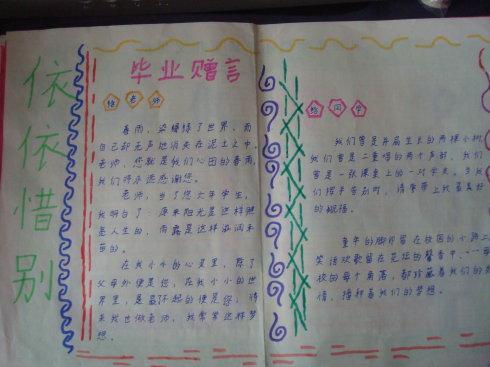 依依惜别
毕业赠言
给老师
春雨，染绿了世界，而
自己却无声地消失在泥土之中。
老师，您就是我们心田的春雨，
我们将永远感谢您。
老师，当了您六年学生，
我明白了：原来阳光是这样照
患人生的，雨露是这样滋润禾
苗的。
在我小小的心灵里，除了
父母外便是您，在我小小的世
界里，是最了不起的便是您，将
来我也做老师，我常常这样梦
想。
给同学
我们曾是并肩生长的两棵小树，
我们曾是一重唱的两个声部，我们
曾是一张课桌上的一对学友。当我
们握手告别时，请带上我最美好
的祝福。
童年的脚印留在校园的小路上，
笑语欢歌留在花坛的馨香中，
校的每个角落，都珍藏着我们的友
情，播种着我们的梦想。